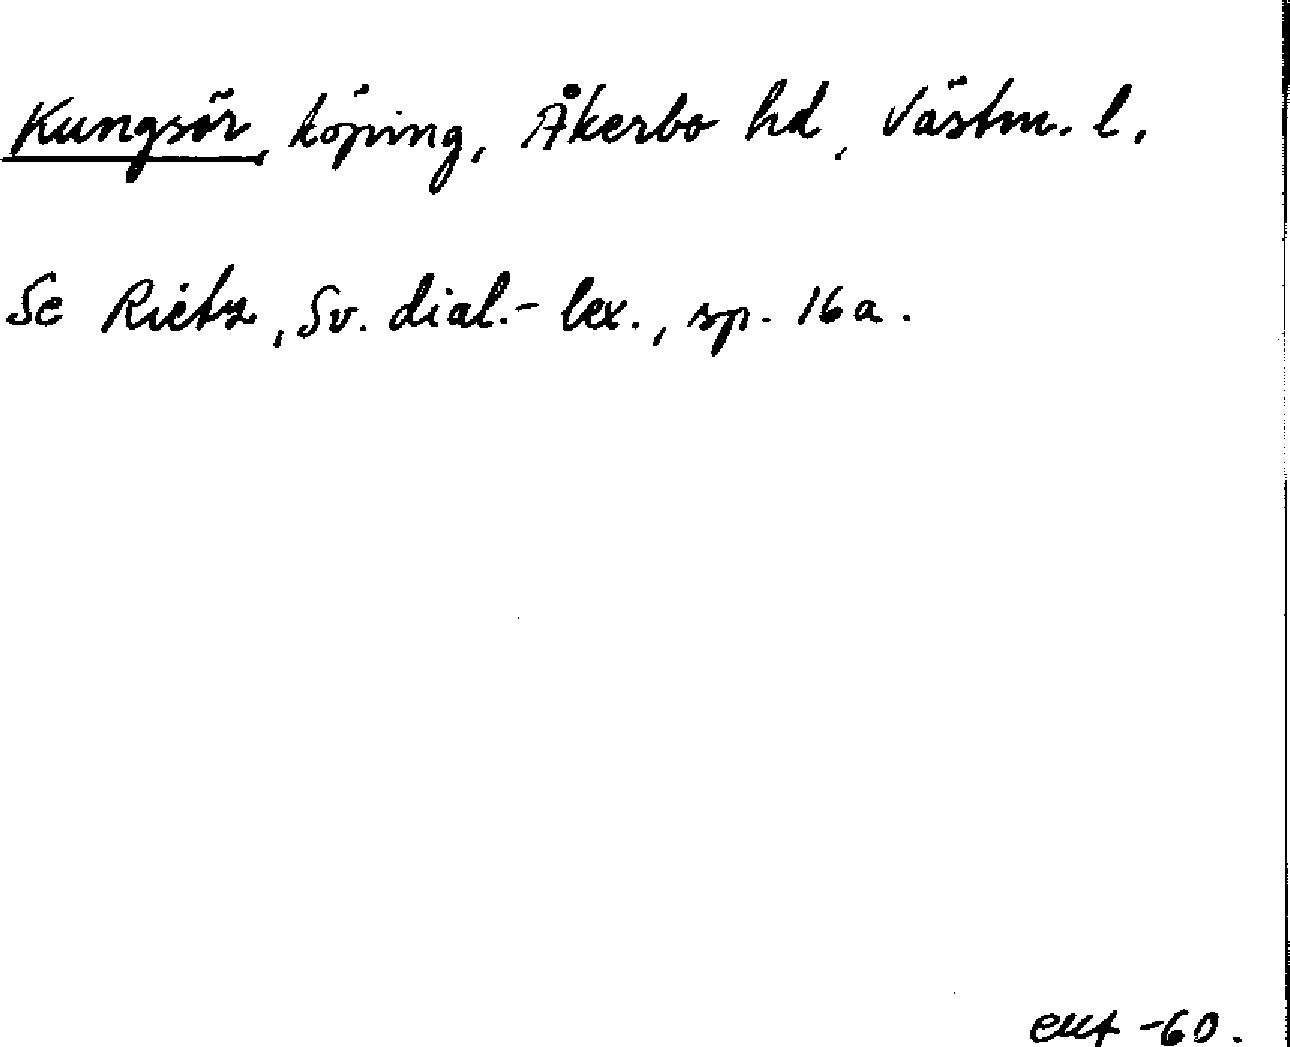 Kungsör, köping, Åkerbo hd, Västm. l.
Se Rietz, Sv. dial.-lex., sp. 16a.
-60.